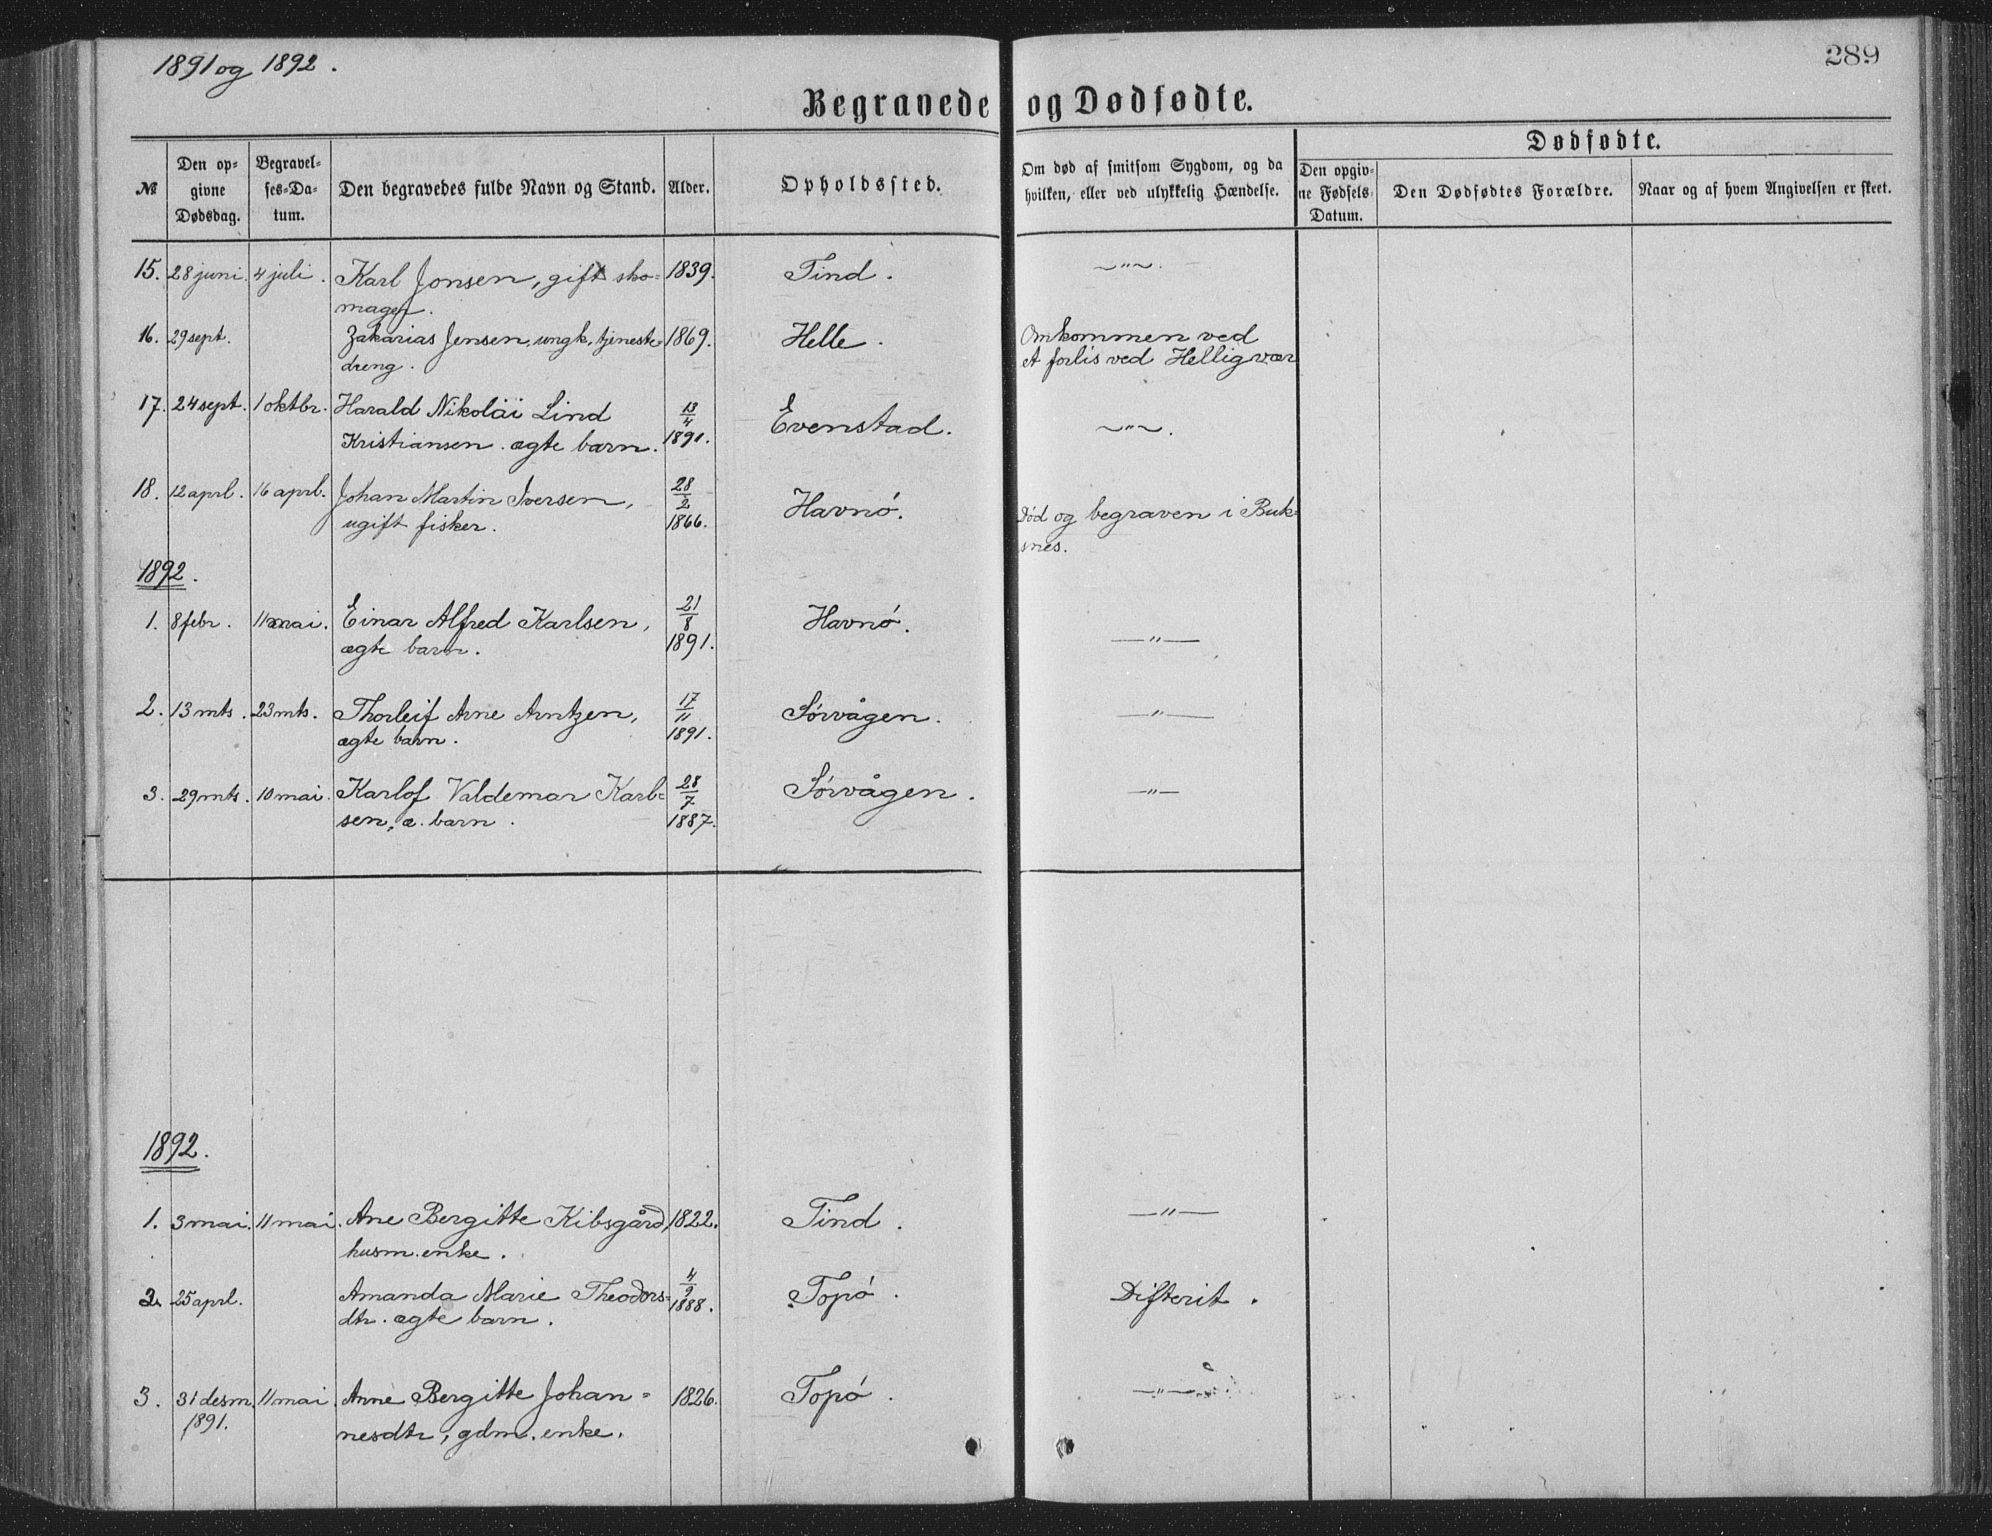 1891 og 1892.
289
Begravede og Dødfødte.
Dødfødte.
№
Den opgivne Dødsdag.
Begravelses-Datum.
Den begravedes fulde Navn og Stand.
Alder.
Opholdssted.
Om død af smitsom Sygdom, og da hvilken, eller ved ulykkelig Hændelse.
Den opgivne Fødsels Datum.
Den Dødfødtes Forældre.
Naar og af hvem Angivelsen er skeet.
15. 28 juni. 4 juli. Karl Jonsen, gift sko- 1839. Tind. —"—.
mager.
16. 29 sept. Zakarias Jensen, ungk, tjeneste- 1869. Helle. Omkommen ved
dreng. et forlis ved Helligvær
17. 24 sept. 1 oktbr. Harald Nikolai Lind 13/4 Evenstad. —"—.
Kristiansen. ægte barn. 1891.
18. 12 aprl. 16 aprl. Johan Martin Iversen, 28/2 Havnö. Død og begraven i Buk-
ugift fisker. 1866. snes.
1892.
1. 8 febr. 11 mai. Einar Alfred Karlsen, 21/8 Havnö. —"—
ægte barn. 1891.
2. 13 mts. 23 mts. Thorleif Arne Arntzen, 17/11 Sörvågen. —"—
ægte barn. 1891.
3. 29 mts. 10 mai. Karlof Valdemar Karl- 28/7 Sörvågen. —"—
sen, æ. barn. 1887.
1892.
1. 3 mai. 11 mai. Ane Bergitte Kibsgård, 1822. Tind. —"—
husm. enke.
2. 25 aprl. Amanda Marie Theodors- 4/9 Topö. Difterit.
dtr. ægte barn. 1888.
3. 31 desm. 11 mai Anne Bergitte Johan- 1826. Topö. —"—
1891. nesdtr, gdm. enke.